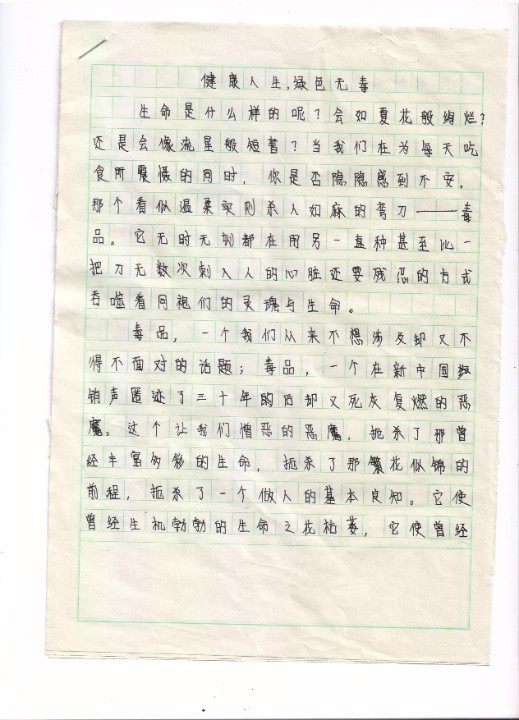 健康人生,绿色无毒
生命是什么样的呢?会如夏花般绚烂?
还是会像流星般短暂?当我们在为每天吃
食所震慑的同时,你是否隐隐感到不安,
那个看似温柔实则杀人如麻的弯刀——毒
品。它无时无刻都在用另一直种甚至比一
把刀无数次刺入人的心脏还要残忍的方式
吞噬着同袍们的灵魂与生命。
毒品,一个我们从来不想涉及却又不
得不面对的话题;毒品,一个在新中国
销声匿迹了三十年的后却又死灰复燃的恶
魔。这个让我们憎恶的恶魔,扼杀了那曾
经丰富多彩的生命,扼杀了那繁花似锦的
前程,扼杀了一个做人的基本良知。它使
曾经生机勃勃的生命之花枯萎,它使曾经